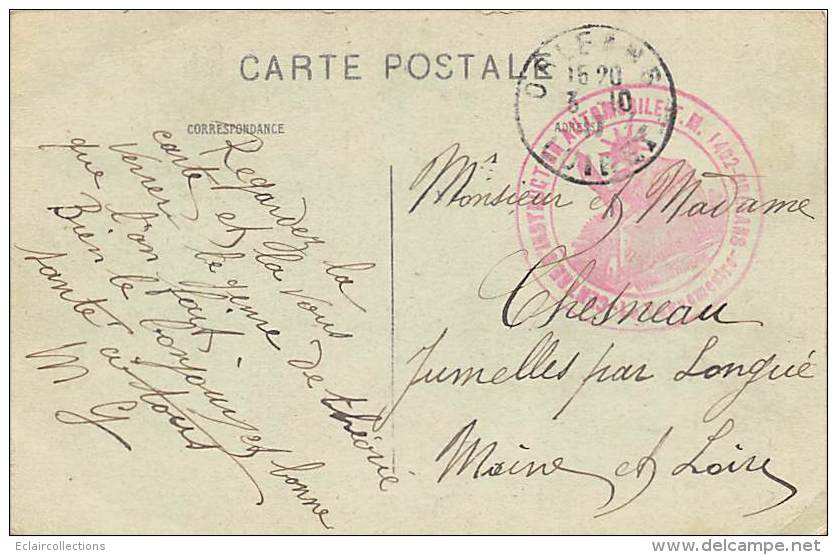 CARTE POSTALE
CORRESPONDANCE
ADRESSE
ORLEANS
15 20
3 10
LOIRET
AUTOMOBILE
Regardez la
carte et la vous
verrez le genre de théorie
que l'on fait.
Bien le bonjour et bonne
santé à tous
M G
Monsieur et Madame
Chesneau
Jumelles par Longué
Maine et Loire
Eclaircollections
delcampe.net